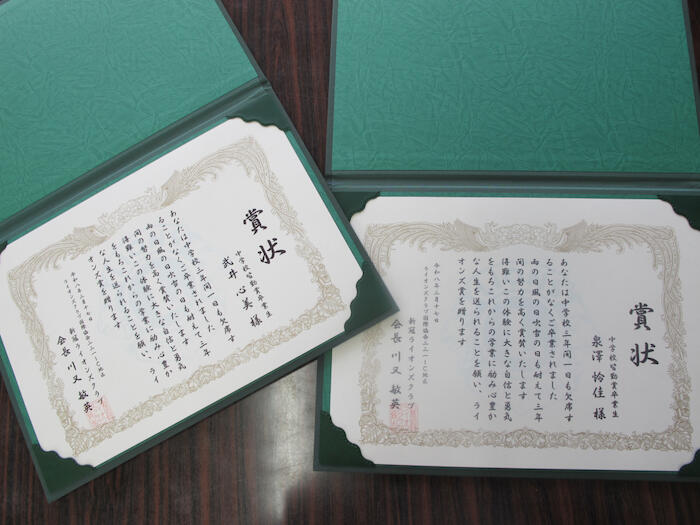 賞状
中学校皆勤賞卒業生
武井 心美 様
あなたは中学校三年間一日も欠席す
ることがなくご卒業されました
雨の日風の日吹雪の日も耐えて三年
間の努力を高く賞賛いたします
得難いこの体験に大きな自信と勇気
をもちこれからの学業に励み心豊か
な人生を送られることを願い、ライ
オンズ賞を贈ります
令和八年三月十七日
ライオンズクラブ国際協会三三一―C地区
新冠ライオンズクラブ
会長 川又 敏英
賞状
中学校皆勤賞卒業生
泉澤 怜佳 様
あなたは中学校三年間一日も欠席す
ることがなくご卒業されました
雨の日風の日吹雪の日も耐えて三年
間の努力を高く賞賛いたします
得難いこの体験に大きな自信と勇気
をもちこれからの学業に励み心豊か
な人生を送られることを願い、ライ
オンズ賞を贈ります
令和八年三月十七日
ライオンズクラブ国際協会三三一―C地区
新冠ライオンズクラブ
会長 川又 敏英